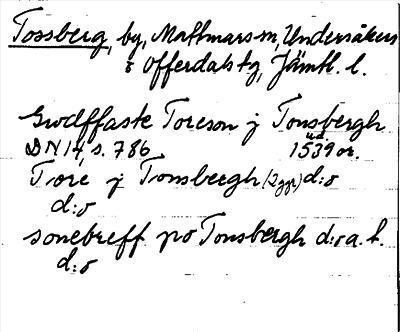 Tossberg, by, Mattmars sn, Undersåkers
& Offerdals tg, Jämtl. l.
Gwdffaste Toreson j Tonsbergh
DN 14, s. 786 u.d. 1539 or.
Tore j Tonsbergh (2 ggr) d:o
d:o
sonebreff po Tonsbergh d:o a. h.
d:o